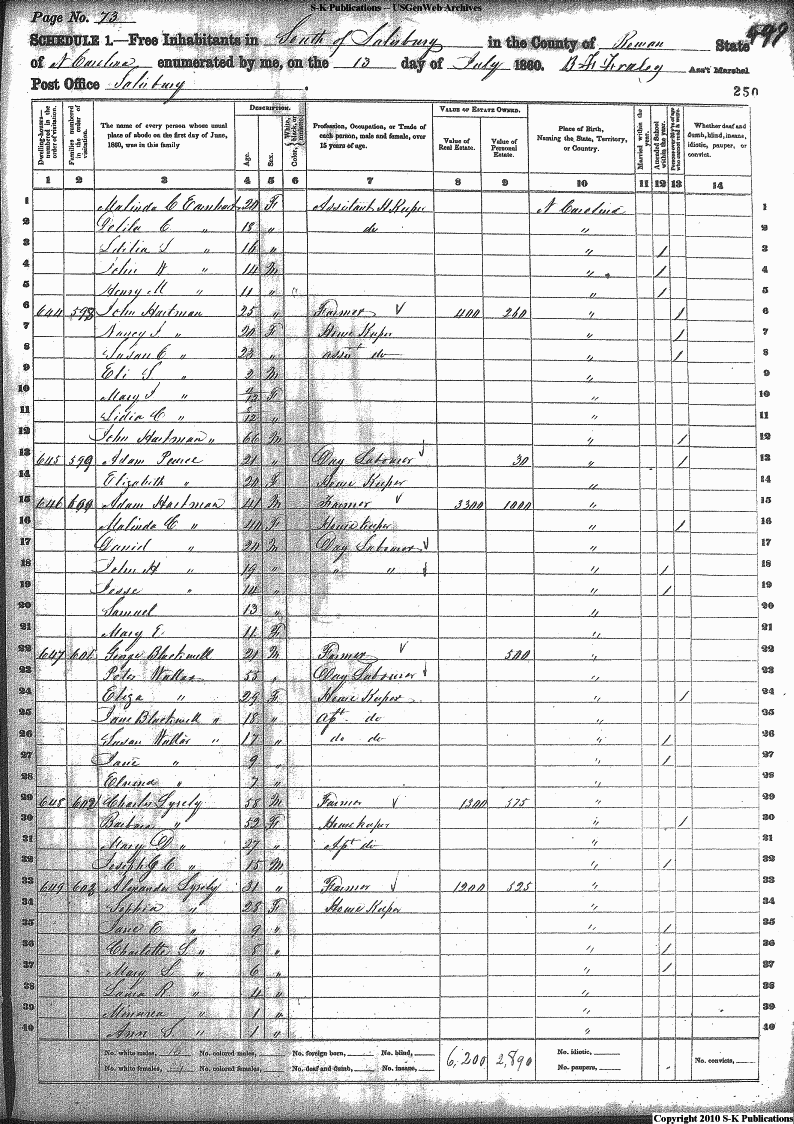 S-K Publications -- USGenWeb Archives
Page No. 73
SCHEDULE 1.—Free Inhabitants in South of Salisbury in the County of Rowan State
of N Carolina enumerated by me, on the 13 day of July 1860. B F Fraley Ass't Marshal
Post Office Salisbury
250
Dwelling-houses—numbered in the order of visitation.
Families numbered in the order of visitation.
The name of every person whose usual place of abode on the first day of June, 1860, was in this family
DESCRIPTION.
Age.
Sex.
Color, White, black, or mulatto.
Profession, Occupation, or Trade of each person, male and female, over 15 years of age.
VALUE OF ESTATE OWNED.
Value of Real Estate.
Value of Personal Estate.
Place of Birth, Naming the State, Territory, or Country.
Married within the year.
Attended School within the year.
Whether deaf and dumb, blind, insane, idiotic, pauper, or convict.
1 2 3 4 5 6 7 8 9 10 11 12 13 14
1 Malinda C Earnhart 20 F Assistant H Keeper N Carolina 1
2 C " 18 " do " 2
3 Letitia L " 16 " " / 3
4 John W " 14 M " / 4
5 Henry M " 11 " " / 5
6 644 598 John Hartman 25 " Farmer 400 260 " / 6
7 Nancy J " 20 F House Keeper " / 7
8 Susan C " 23 " asst do " / 8
9 Eli S " 2 M " 9
10 Mary J " /12 F " 10
11 Lidia C " /12 " " 11
12 John Hartman " 66 M " / 12
13 645 599 Adam Peace 21 " Day Labourer 30 " / 13
14 Elizabeth " 20 F House Keeper " 14
15 646 600 Adam Hartman 41 M Farmer 3300 1000 " 15
16 Malinda C " 40 F House keeper " / 16
17 Daniel " 20 M Day Labourer " 17
18 John H " 19 " " " " / 18
19 Jesse " 14 " " / 19
20 Samuel 13 " " 20
21 Mary E 11 F " 21
22 647 601 George Blackwell 21 M Farmer 500 " 22
23 Peter Wallar 55 " Day Labourer " 23
24 Eliza " 29 F House Keeper " / 24
25 Jane Blackwell " 18 " apt do " 25
26 Susan Wallar " 17 " do do " / 26
27 Jane " 9 " " / 27
28 " 7 " " 28
29 648 602 Charles Lyrely 58 M Farmer 1300 575 " 29
30 Barbara " 52 F House keeper " / 30
31 Mary D " 27 " Apt do " 31
32 Joseph G C " 15 M " / 32
33 649 603 Alexander Lyrely 31 " Farmer 1200 525 " 33
34 Sophia " 28 F House Keeper " 34
35 Jane E " 9 " " / 35
36 Charlotte L " 8 " " / 36
37 Mary L " 6 " " / 37
38 Laura R " 4 " " 38
39 " 1 " " 39
40 Ann L " 1 " " 40
No. white males, No. colored males, No. foreign born, No. blind, 6,200 2,890 No. idiotic, No. convicts,
No. white females, No. colored females, No. deaf and dumb, No. insane, No. paupers,
Copyright 2010 S-K Publications